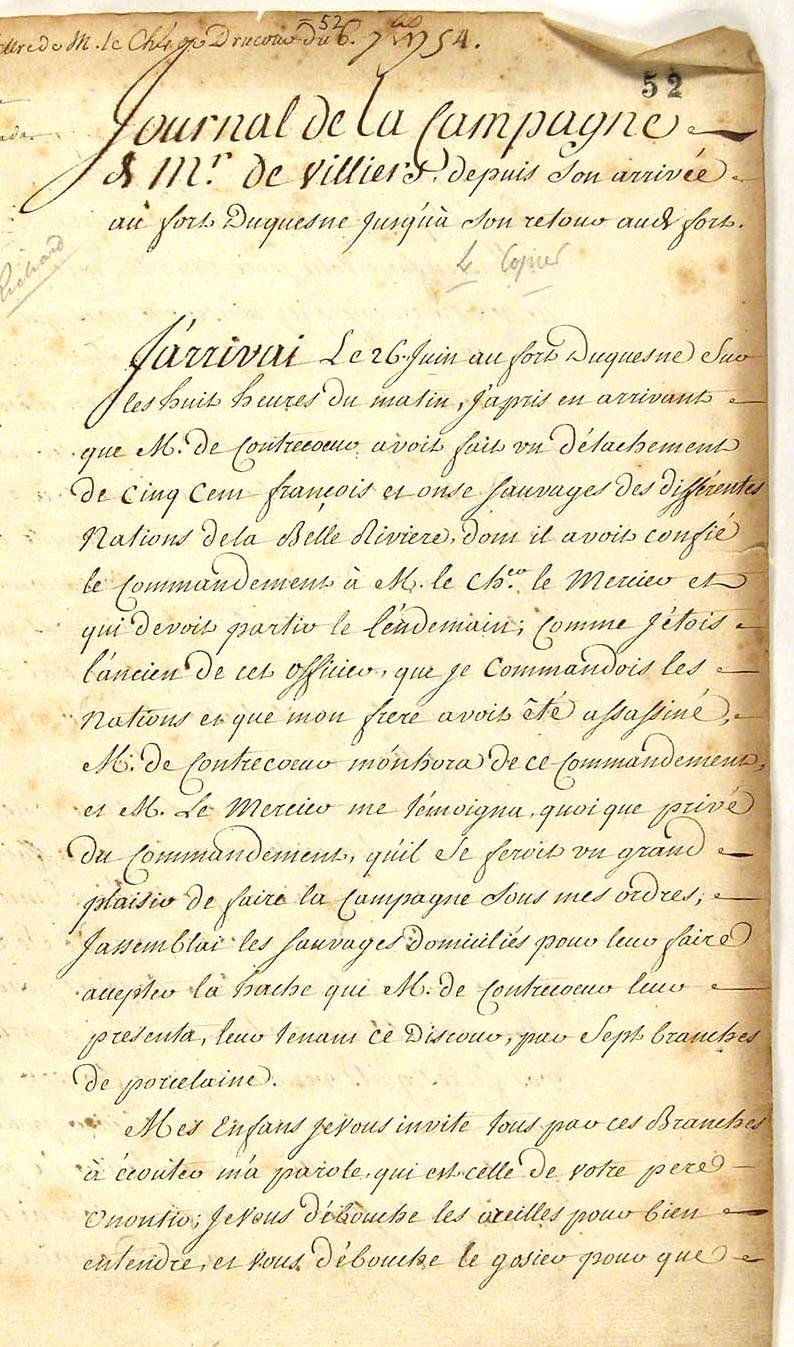 M. le Chev. de Drucour du 6. 7bre 1754.
52
52
Journal de la Campagne
de Mr. de Villiers, depuis Son arrivée
au fort Duquesne jusqu'à Son retour audt. fort.
à Copier
Richard
J'arrivai Le 26. Juin au fort Duquesne Sur
les huit heures du matin, J'apris en arrivant
que M. de Contrecoeur avoit fait un détachement
de Cinq Cent françois et onse Sauvages des différentes
Nations de la Belle Riviere, dont il avoit confié
le Commandement à M. le Cher. le Mercier et
qui devoit partir le lendemain; Comme J'étois
l'ancien de cet Officier, que je Commandois les
Nations et que mon frere avoit été assassiné,
M. de Contrecoeur m'onhora de ce Commandement,
et M. Le Mercier me témoigna, quoique privé
du Commandement, qu'il Se feroit un grand
plaisir de faire la Campagne Sous mes ordres;
J'assemblai les Sauvages Domiciliés pour leur faire
accepter la hache que M. de Contrecoeur leur
presenta, leur tenant ce Discour, par Sept branches
de porcelaine.
Mes Enfans je vous invite tous par ces Branches
à écouter ma parole, qui est celle de votre pere
Onontio; Je vous débouche les oreilles pour bien
entendre, et vous débouche le gosier pour que